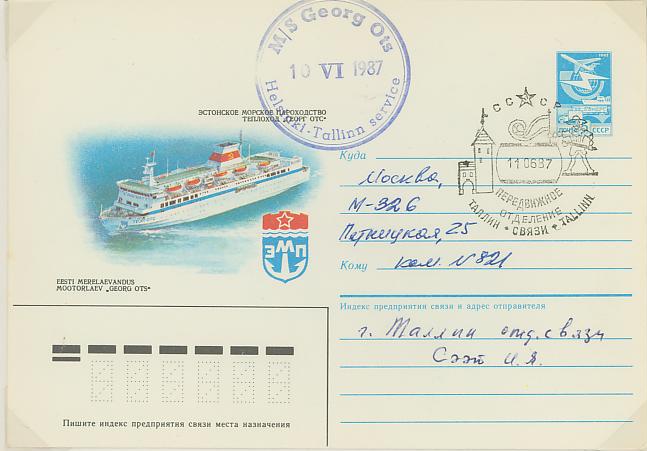 M/S Georg Ots
10 VI 1987
Helsinki-Tallinn service
ЭСТОНСКОЕ МОРСКОЕ ПАРОХОДСТВО
ТЕПЛОХОД „ГЕОРГ ОТС“
ЭМП
EESTI MERELAEVANDUS
MOOTORLAEV „GEORG OTS“
ПОЧТА СССР
СССР
11.06.87
ПЕРЕДВИЖНОЕ
ОТДЕЛЕНИЕ
СВЯЗИ
ТАЛЛИН • TALLINN
Куда Москва,
М-326
Пятницкая, 25
Кому ком. N 821
Индекс предприятия связи и адрес отправителя
г. Таллин отд. связи
Сээт И.Я.
Пишите индекс предприятия связи места назначения